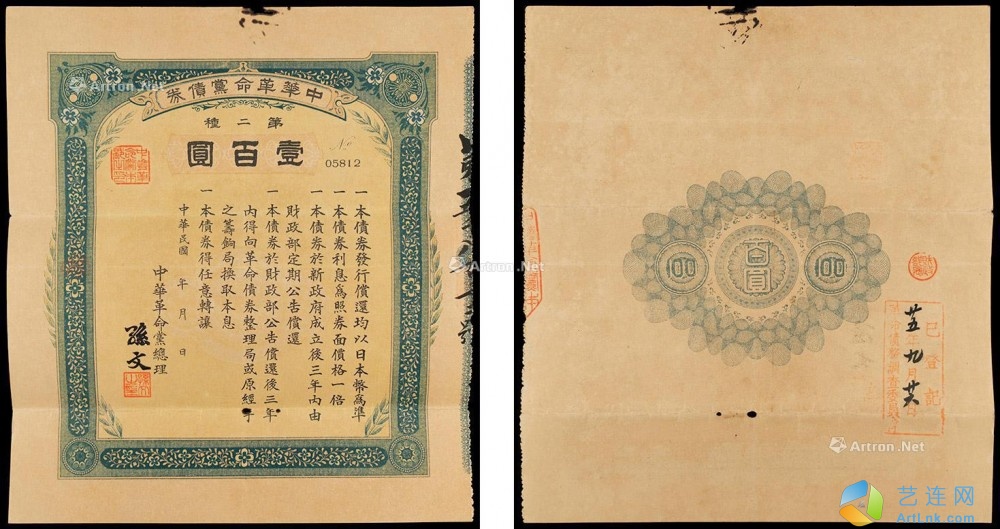 中華革命黨債券
第二種
壹百圓
No
05812
一本債券發行償還均以日本幣爲準
一本債券利息爲照券面價格一倍
一本債券於新政府成立後三年內由
財政部定期公告償還
一本債券於財政部公告償還後三年
內得向革命債券整理局或原經手
之籌餉局換取本息
一本債券得任意轉讓
中華民國 年 月 日
中華革命黨總理
孫文
Artron.Net
Artron.Net
百圓
100
100
已登記
廿五年九月廿六
Artron.Net
艺连网
ArtLnk.com